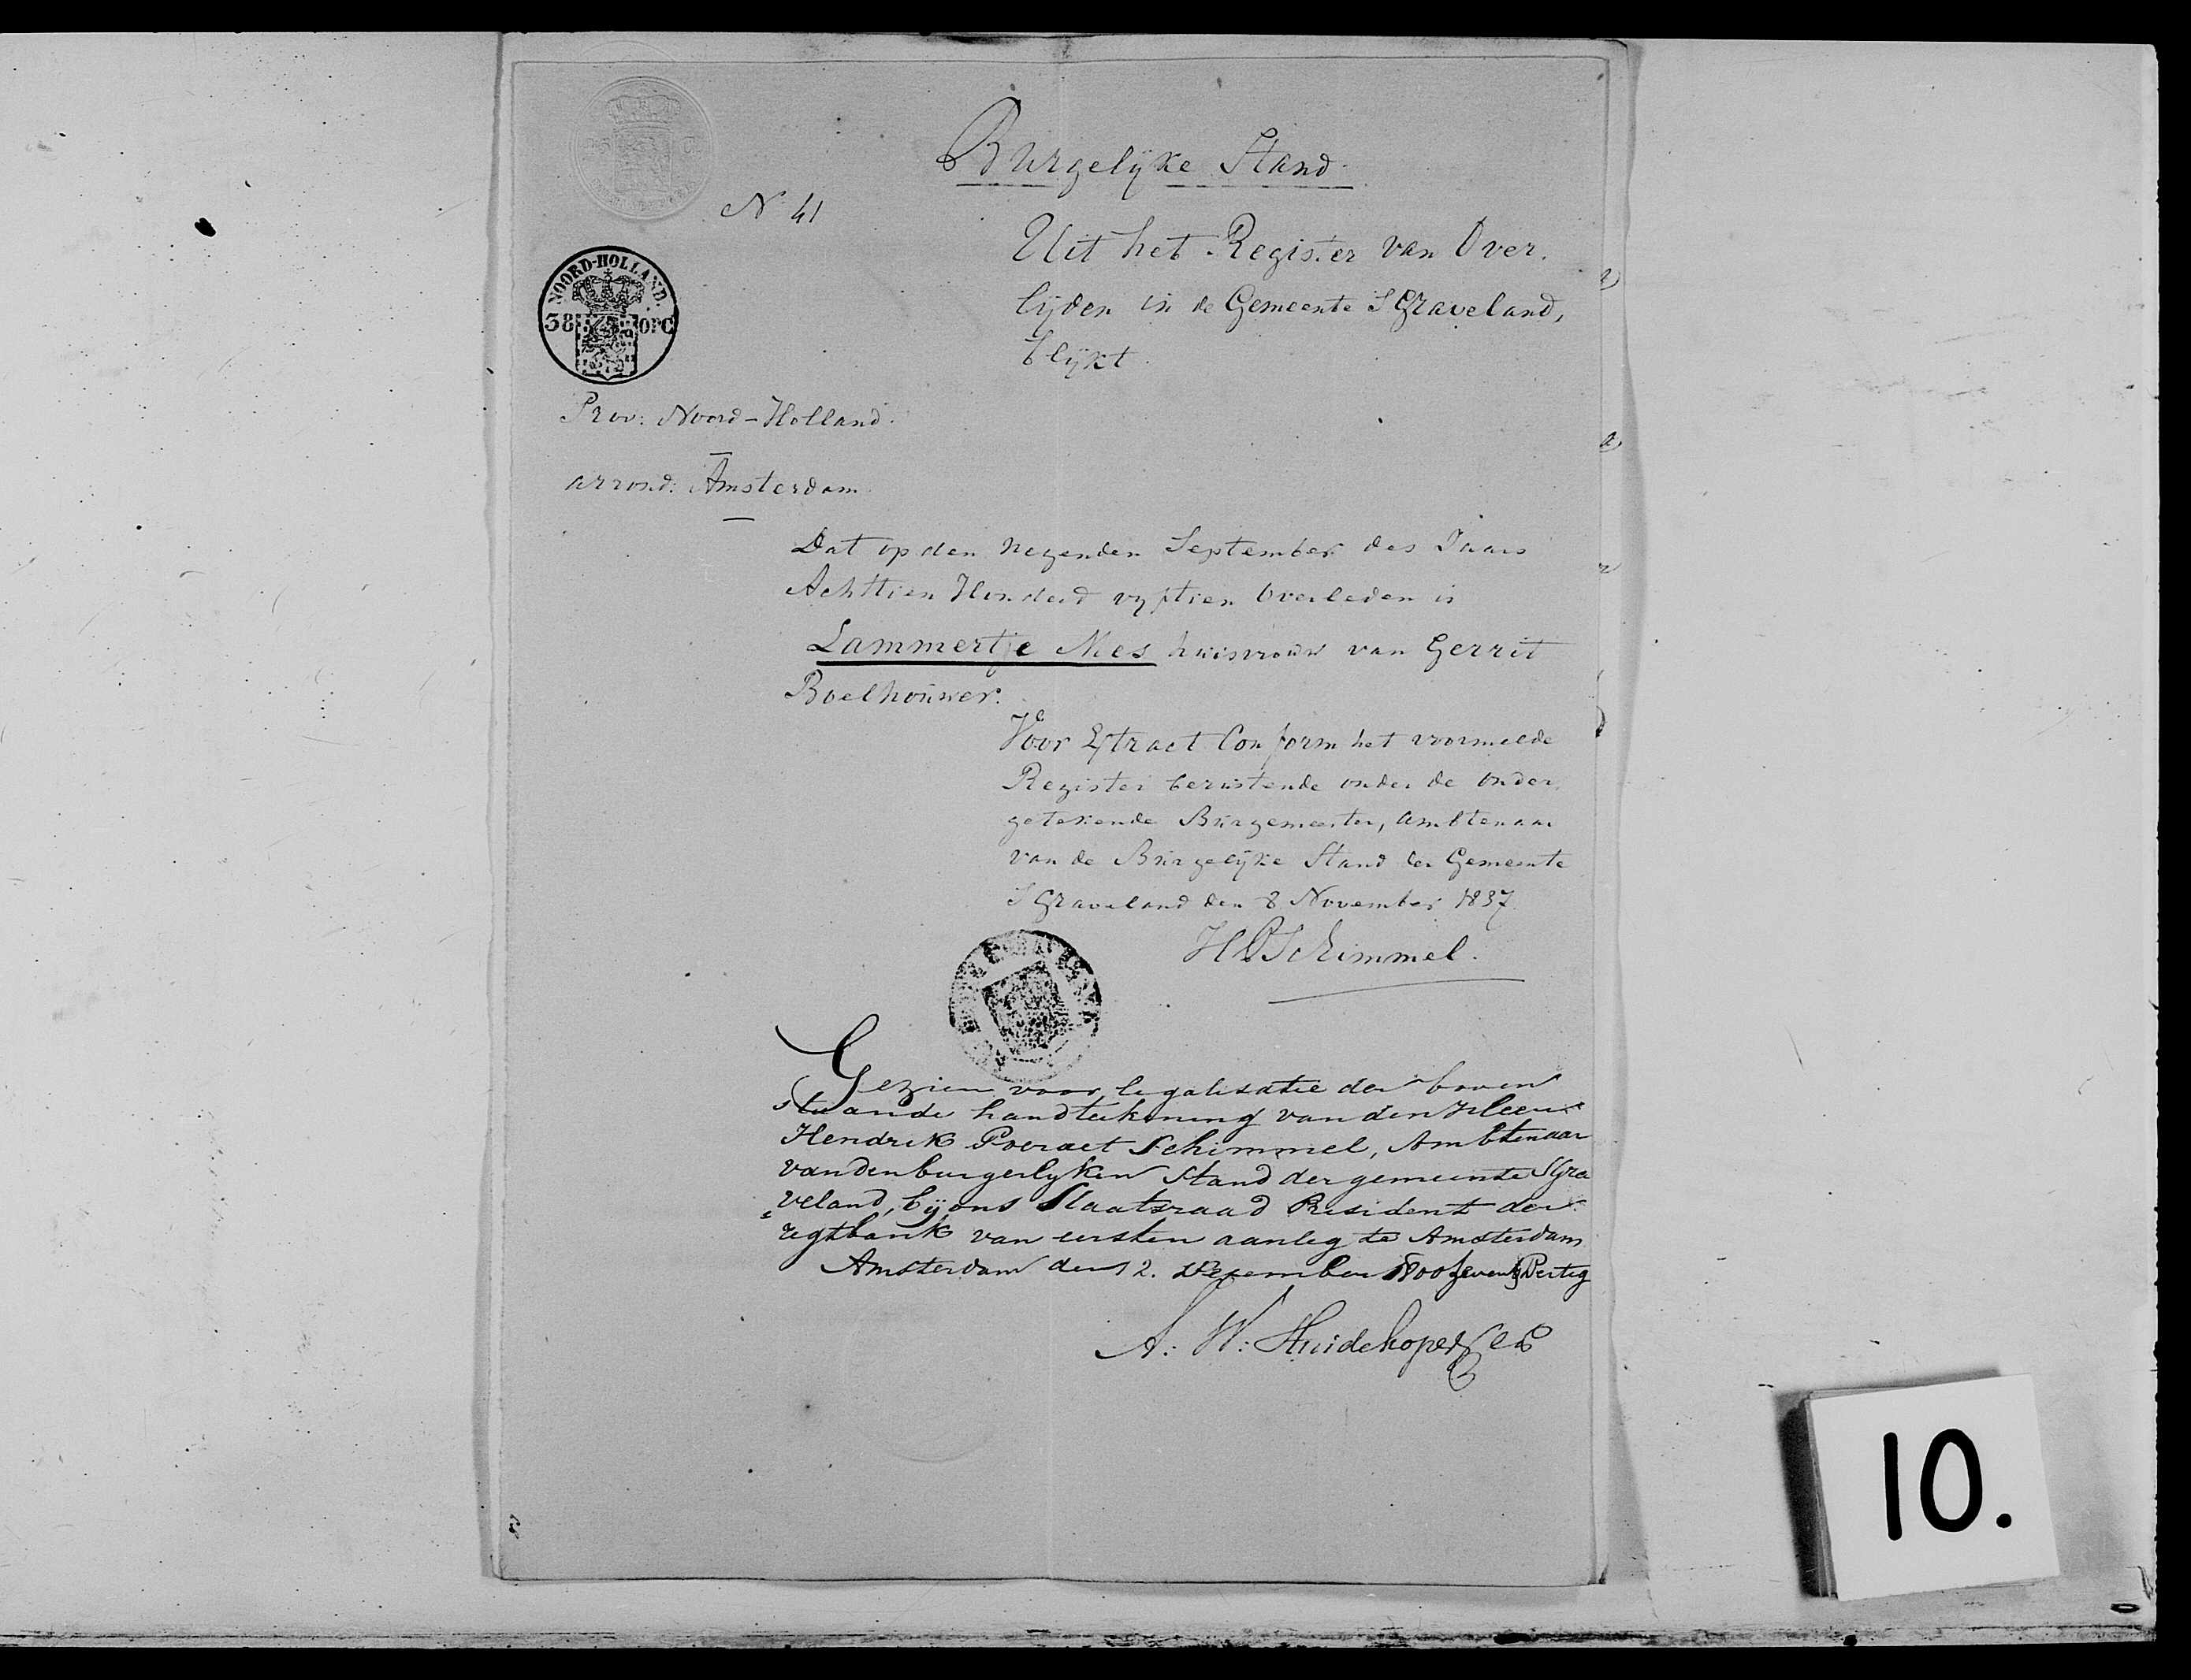 Burgelijke Stand.
N 41
Uit het Register van Over.
lijden in de Gemeente S Graveland,
blijkt.
NOORD-HOLLAND.
38 OPC
Prov: Noord-Holland.
arrond: Amsterdam
Dat op den negenden September des Jaars
Achttien Honderd vyftien Overleden is
Lammertje Mes huisvrouw van Gerrit
Boelhouwer.
Voor Extract Conform het voormelde
Register berustende onder de onder,
getekende Burgemeester, Ambtenaar
van de Burgelijke Stand der Gemeente
S Graveland den 8 November 1837
HP Schimmel.
Gezien voor legalisatie der boven
staande handteekening van den Heer
Hendrik Poeraet Schimmel, Ambtenaar
van den burgerlyken Stand der gemeente SGra
veland, bij ons Staatsraad President der
regtbank van eersten aanleg te Amsterdam
Amsterdam den 2. December 1800 zeven & Dertig
A: W: Huidekoper
10.